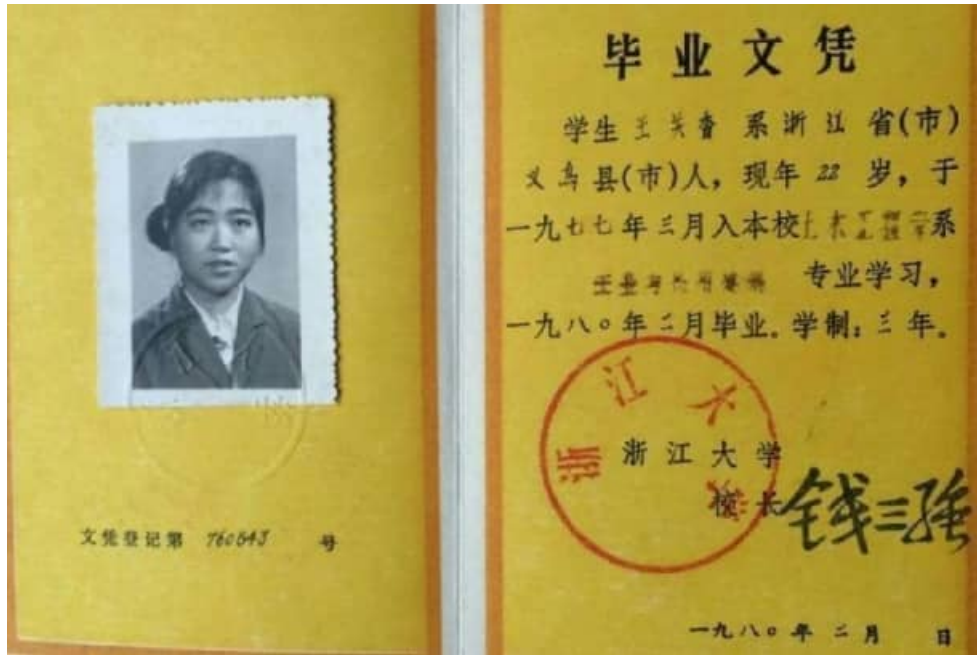 文凭登记第 760643 号
毕业文凭
学生 王关香 系浙江省(市)
义乌县(市)人，现年 22 岁，于
一九七七年三月入本校土木工程学系
专业学习，
一九八〇年二月毕业。学制：三年。
浙江大学
浙江大学
校长 钱三强
一九八〇年二月 日